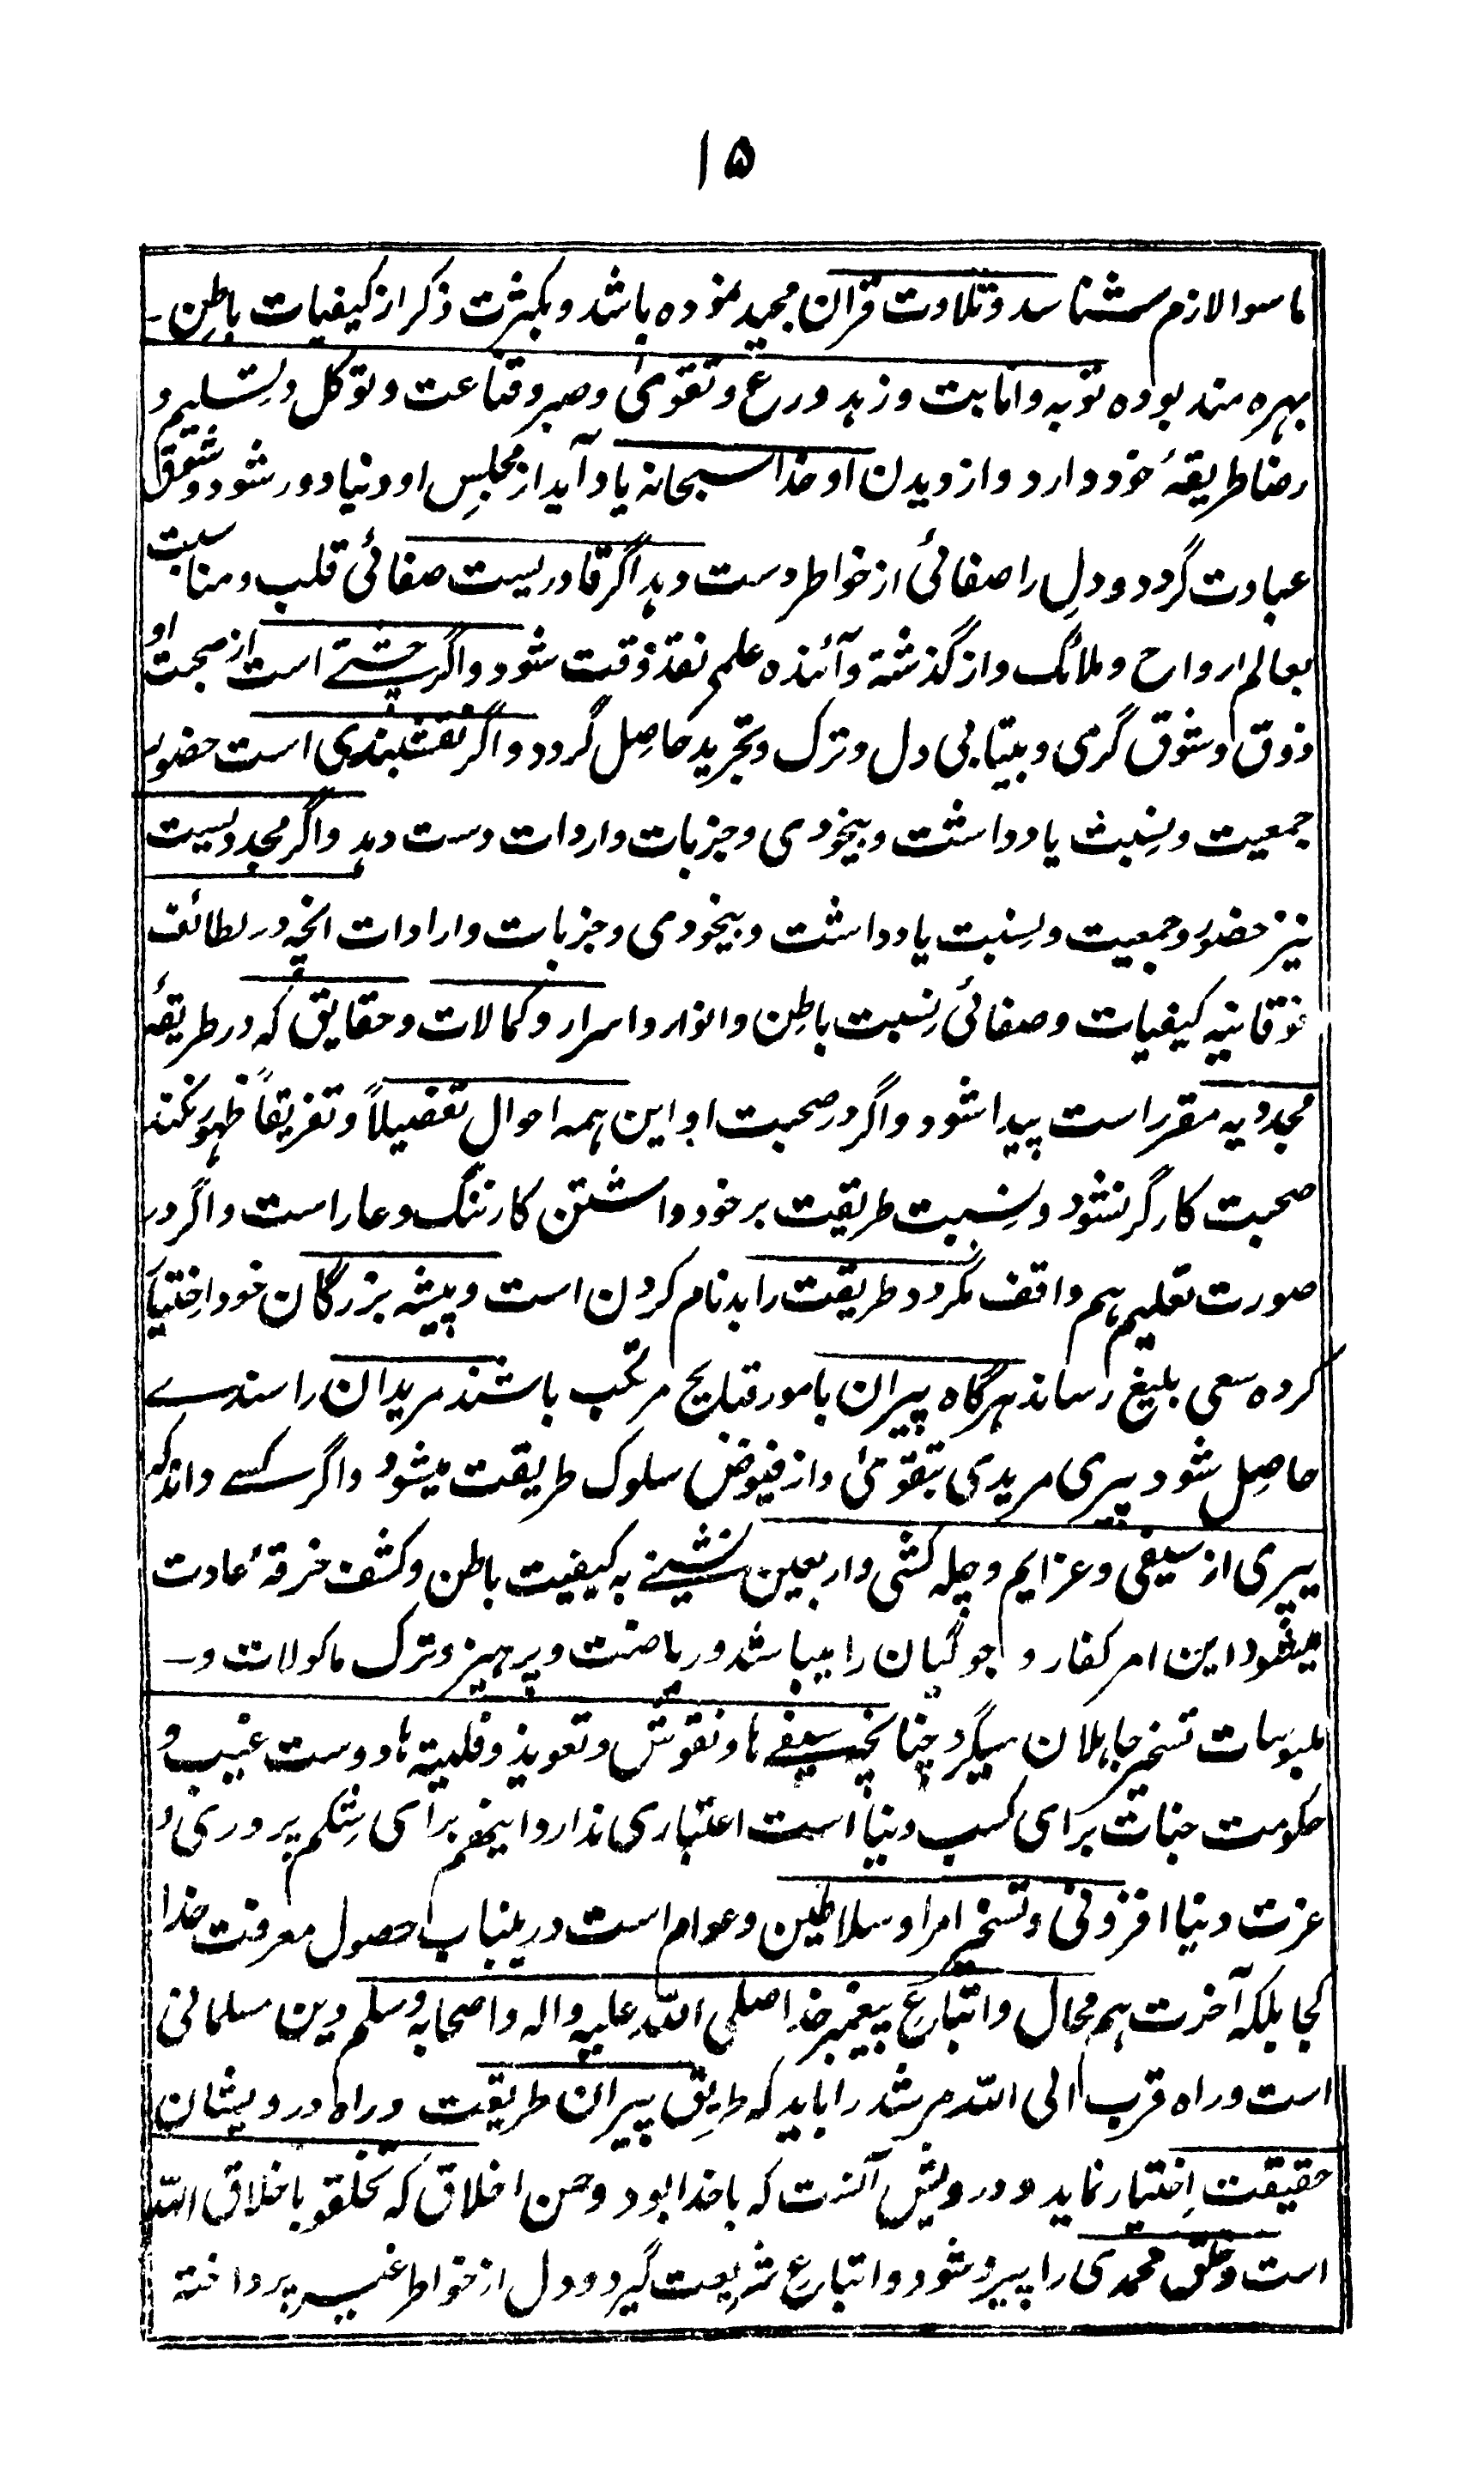 ۱۵
ماسوا لازم شناسد و تلاوت قرآن مجید نموده باشد و بکثرت ذکر از کیفیات باطن۔
بهره مند بوده توبه و انابت و زہد و ورع و تقویٰ و صبر و قناعت و توکل و تسلیم و
رضا طریقۂ خود دارد و از دیدن او خدا سبحانہ یاد آید از مجلسِ او دنیا دور شود و شوق
عبادت گردد و دلِ را صفائی از خواطر دست دہد اگر قادریست صفائی قلب و مناسبت
بعالم ارواح و ملائک و از گذشتہ و آئندہ علم نقد وقت شود و اگر چشتے است از صحبت او
ذوق و شوق گرمی و بیتابی دل و ترک و تجرید حاصِل گردد و اگر نقشبندی است حضور
جمعیت و نِسبت یادداشت و بیخودی و جذبات واردات دست دہد و اگر مجددیست
نیز حضور و جمعیت و نِسبت یادداشت و بیخودی و جذبات و ارادات انچہ در لطائف
فوقانیہ کیفیات و صفائی نِسبت باطِن و انوار و اسرار و کمالات و حقایق کہ در طریقۂ
مجددیہ مقرر است پیدا شود و اگر در صحبت او این ہمہ احوال تفضیلاً و تفریقاً ظہور نکند
صحبت کارگر نشود و نِسبت طریقت بر خود داشتن کار ننگ و عار است و اگر در
صورت تعلیم ہم واقف نگردد طریقت را بدنام کردن است و پیشہ بزرگان خود اختیار
کردہ سعی بلیغ رساند ہرگاہ پیران بامور قبایح مرتکب باشند مریدان را سندے
حاصِل شود پیری مریدی بتقویٰ و از فیوض سلوک طریقت میشود و اگر کسے داند کہ
پیری از سیفی و عزایم و چلہ کشی و اربعین نشینے بہ کیفیت باطن و کشف خرقۂ عادت
میشود این امر کفار و جوگیان را میباشد و ریاضت و پرہیز و ترک ماکولات و۔
ملبوسات تسخیر جاہلان میگردد چنانچہ سیفے ہا و نقوش و تعویذ و فلیتہ ہا و دست غیب و
حکومت جنات برای کسب دنیا است اعتباری ندارد اینہم برای شِکم پروری و
عزت دنیا افزونی و تسخیر امرا و سلاطین و عوام است درینباب حصول معرفت خدا
کجا بلکہ آخرت ہم محال و اتباع پیغمبر خدا صلی اللہ علیہ والہ واصحابہ وسلم دین مسلمانی
است و راہ قرب الی اللہ مرشد را باید کہ طریق پیران طریقت و راہ درویشان
حقیقت اِختیار نماید و درویش آنست کہ با خدا بود و حسن اخلاق کہ تخلقو باخلاق اللہ
است و خلق محمدی را پیرو شود و اتباع شریعت گیرد و دل از خواطر غیر پرداختہ